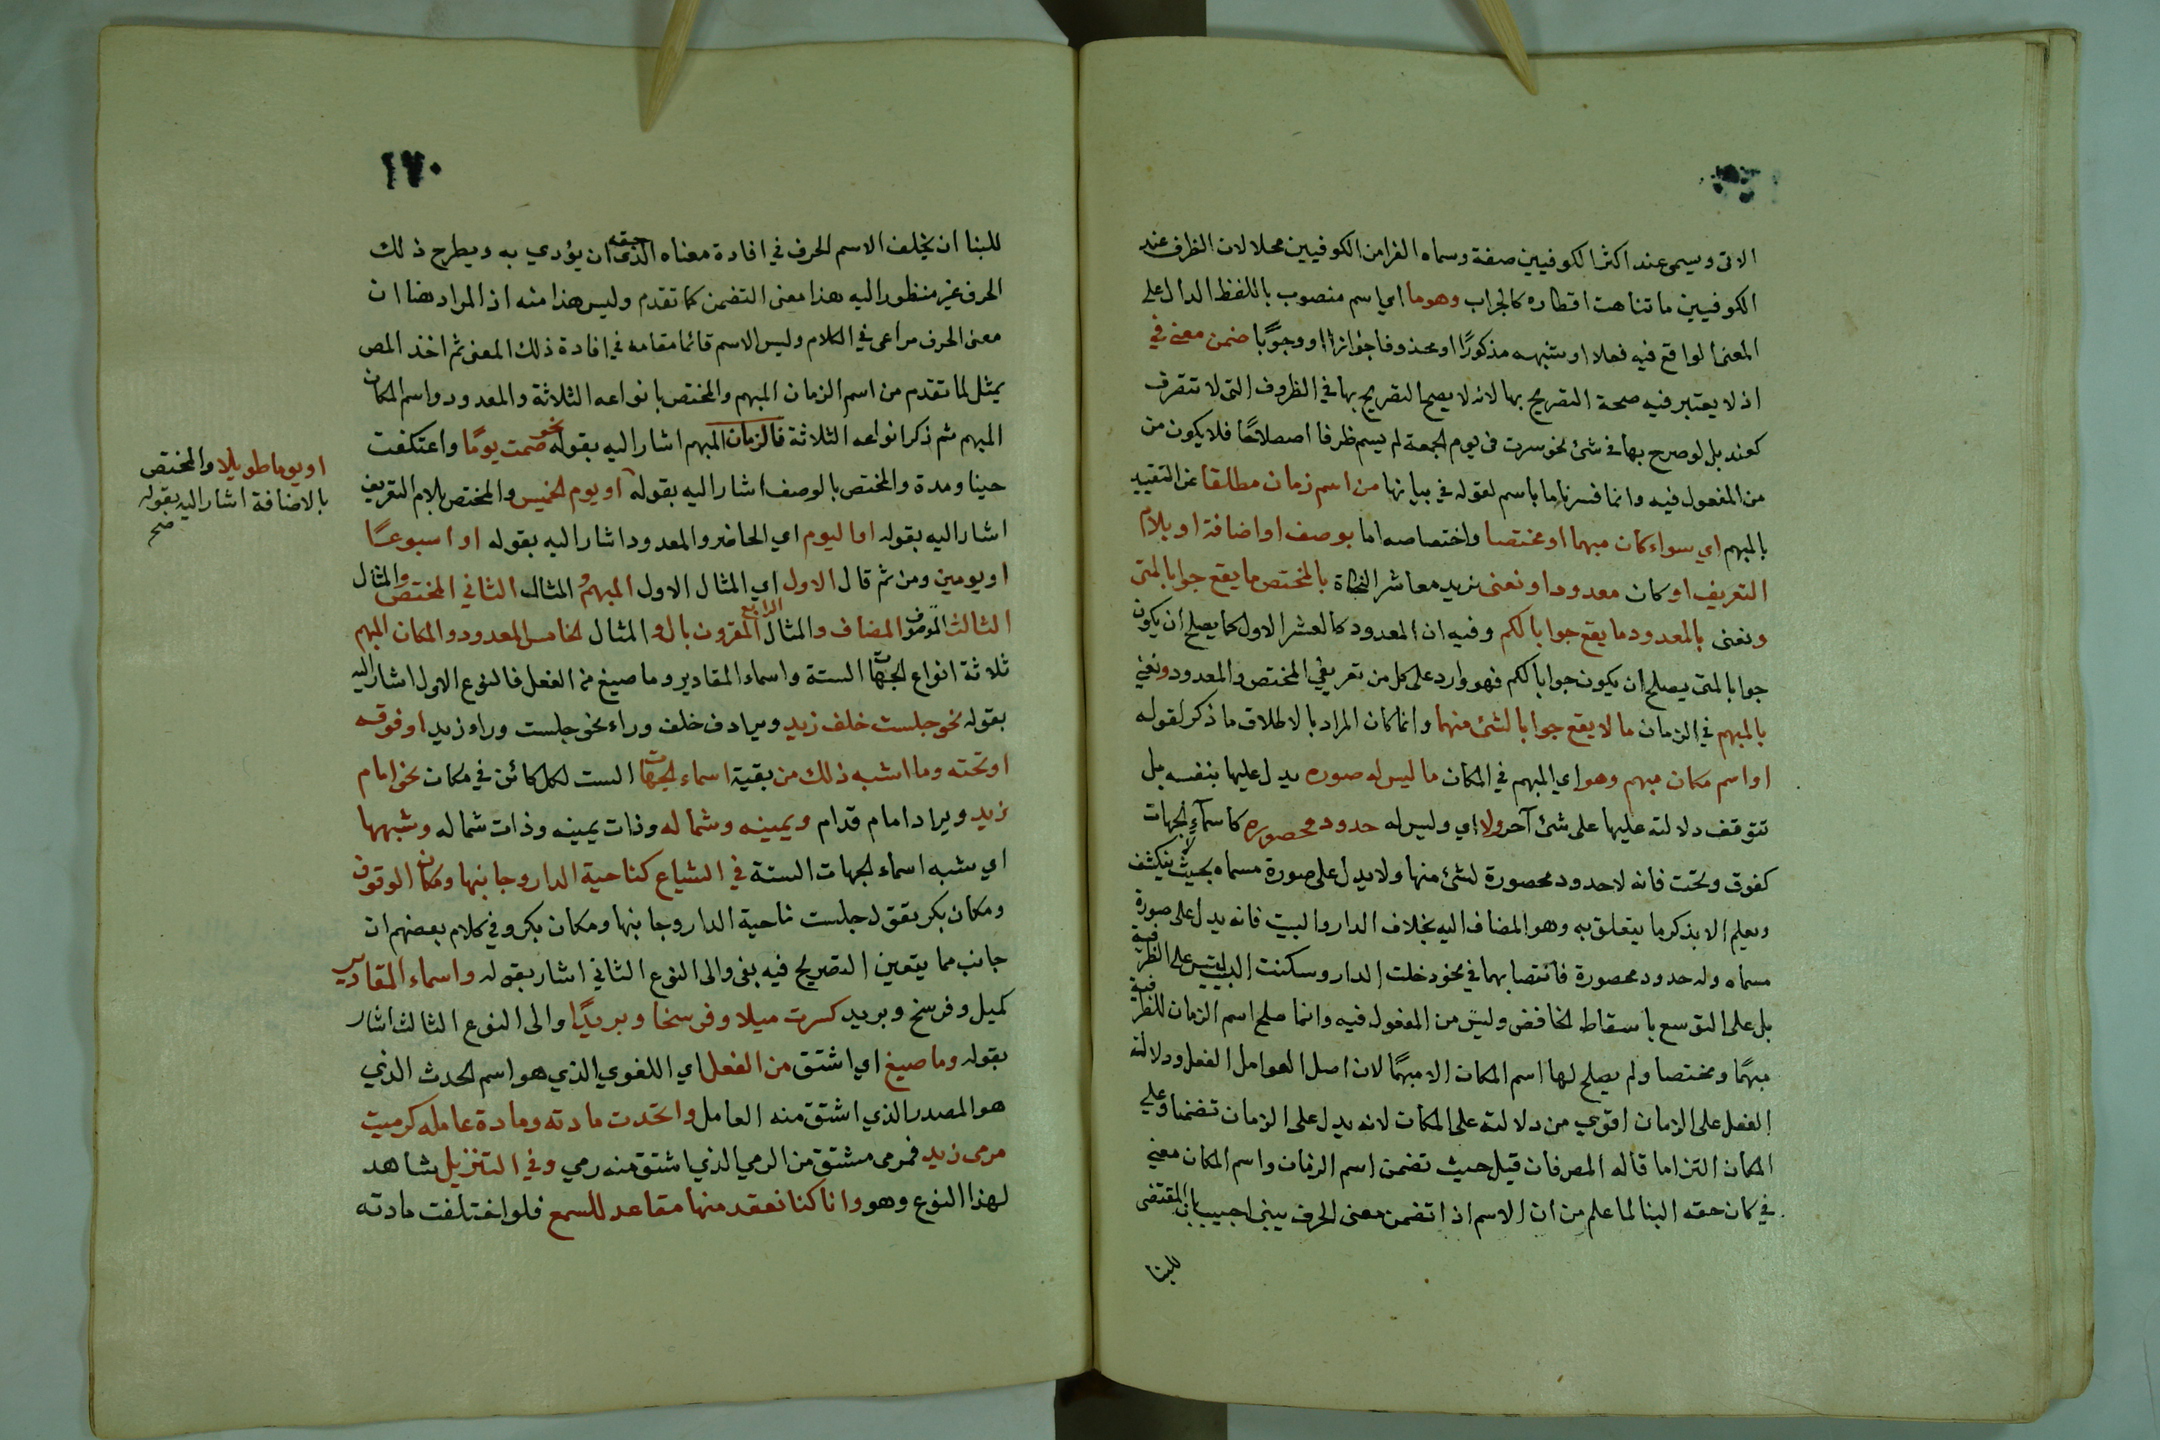 الاتى ويسمى عند اكثر الكوفيين صفة وسماه الفرا من الكوفيين محلا لان الظرف عند
الكوفيين ما تناهت اقطاره كالجراب وهو ما اي اسم منصوب باللفظ الدال على
المعنى الواقع فيه فعلا او شبهه مذكورًا او محذوفا جوازًا او وجوبًا ضمن معنى في
اذ لا يعتبر فيه صحة التصريح بها لانه لا يصح التصريح بها في الظروف التى لا تتصرف
كعند بل لو صرح بها في شئ نحو سرت في يوم الجمعة لم يسم ظرفا اصطلاحًا فلا يكون من
من المفعول فيه وانما فسرنا ما باسم لقوله في بيانها من اسم زمان مطلقا عن التقييد
بالمبهم اي سواء كان مبهما او مختصا واختصاصه اما بوصف او اضافة او بلام
التعريف او كان معدودا ونعنى نريد معاشر النحاة بالمختص ما يقع جوابا لمتى
ونعنى بالمعدود ما يقع جوابا لكم وفيه ان المعدود كالعشر الاول كما يصلح ان يكون
جوابا لمتى يصلح ان يكون جوابا لكم فهو وارد على كل من تعريفي المختص والمعدود ونعني
بالمبهم في الزمان ما لا يقع جوابا لشئ منهما وانما كان المراد بالاطلاق ما ذكر لقوله
او اسم مكان مبهم وهو اي المبهم في المكان ما ليس له صوره يدل عليها بنفسه بل
تتوقف دلالته عليها على شئ آخر ولا اي وليس له حدود محصوره كاسمآء الجهات
كفوق وتحت فانه لا حدود محصورة لشئ منها ولا يدل على صورة مسماه بحيث لا ينكشف
ويعلم الا بذكر ما يتعلق به وهو المضاف اليه بخلاف الدار والبيت فانه يدل على صورة
مسماه وله حدود محصورة فانتصابهما في نحو دخلت الدار وسكنت البيت ليس على الظرفية
بل على التوسع باسقاط الخافض وليس من المفعول فيه وانما صلح اسم الزمان للظرفية
مبهمًا ومختصا ولم يصلح لها اسم المكان الا مبهمًا لان اصل العوامل الفعل ودلالة
الفعل على الزمان اقوي من دلالته على المكان لانه يدل على الزمان تضمنا وعلي
المكان التزاما قاله المصرفان قيل حيث تضمن اسم الزمان واسم المكان معنى
في كان حقه البنا لما علم من ان الاسم اذا تضمن معنى الحرف يبنى اجيب بان المقتضى
للبنا
١٧٠
للبنا ان يخلف الاسم الحرف في افادة معناه الذى حقه ان يؤدي به ويطرح ذلك
الحرف غير منظور اليه هذا معنى التضمن كما تقدم وليس هذا منه اذ المراد هنا ان
معنى الحرف مراعى في الكلام وليس الاسم قائما مقامه في افادة ذلك المعنى ثم اخذ المص
يمثل لما تقدم من اسم الزمان المبهم والمختص بانواعه الثلاثة والمعدود واسم المكان
المبهم ثم ذكر انواعه الثلاثة فالزمان المبهم اشار اليه بقوله نحو صمت يومًا واعتكفت
حينا ومدة والمختص بالوصف اشار اليه بقوله او يوم الخميس والمختص بلام التعريف
او يوما طويلا والمختص
بالاضافة اشار اليه بقوله
صح
اشار اليه بقوله او اليوم اي الحاضر والمعدود اشار اليه بقوله او اسبوعًا
او يومين ومن ثم قال الاول اي المثال الاول المبهم والمثال الثاني المختص والمثال
الثالث الموصوف المضاف والمثال الرابع المقرون بال والمثال الخامس المعدود والمكان المبهم
ثلاثة انواع الجهات الستة واسماء المقادير وما صيغ من الفعل فالنوع الاول اشار اليه
بقوله نحو جلست خلف زيد ويرادف خلف وراء نحو جلست وراء زيد او فوقه
او تحته وما اشبه ذلك من بقية اسماء الجهات الست لكل كائن في مكان نحو امام
زيد ويراد امام قدام ويمينه وشماله وذات يمينه وذات شماله وشبهها
اي شبه اسماء الجهات الستة في الشياع كناحية الدار وجانبها ومكان الوقوف
ومكان بكر بقول جلست ناحية الدار وجانبها ومكان بكر وفي كلام بعضهم ان
جانب مما يتعين التصريح فيه بفى والى النوع الثاني اشار بقوله واسماء المقادير
كميل وفرسخ وبريد كسرت ميلا وفرسخا وبريدًا والى النوع الثالث اشار
بقوله وما صيغ اي اشتق من الفعل اي اللغوي الذي هو اسم الحدث الذي
هو المصدر الذي اشتق منه العامل واتحدت مادته ومادة عامله كرميت
مرمى زيد فمرمى مشتق من الرمي الذي اشتق منه رمي وفي التنزيل شاهد
لهذا النوع وهو وانا كنا نقعد منها مقاعد للسمع فلو اختلفت مادته